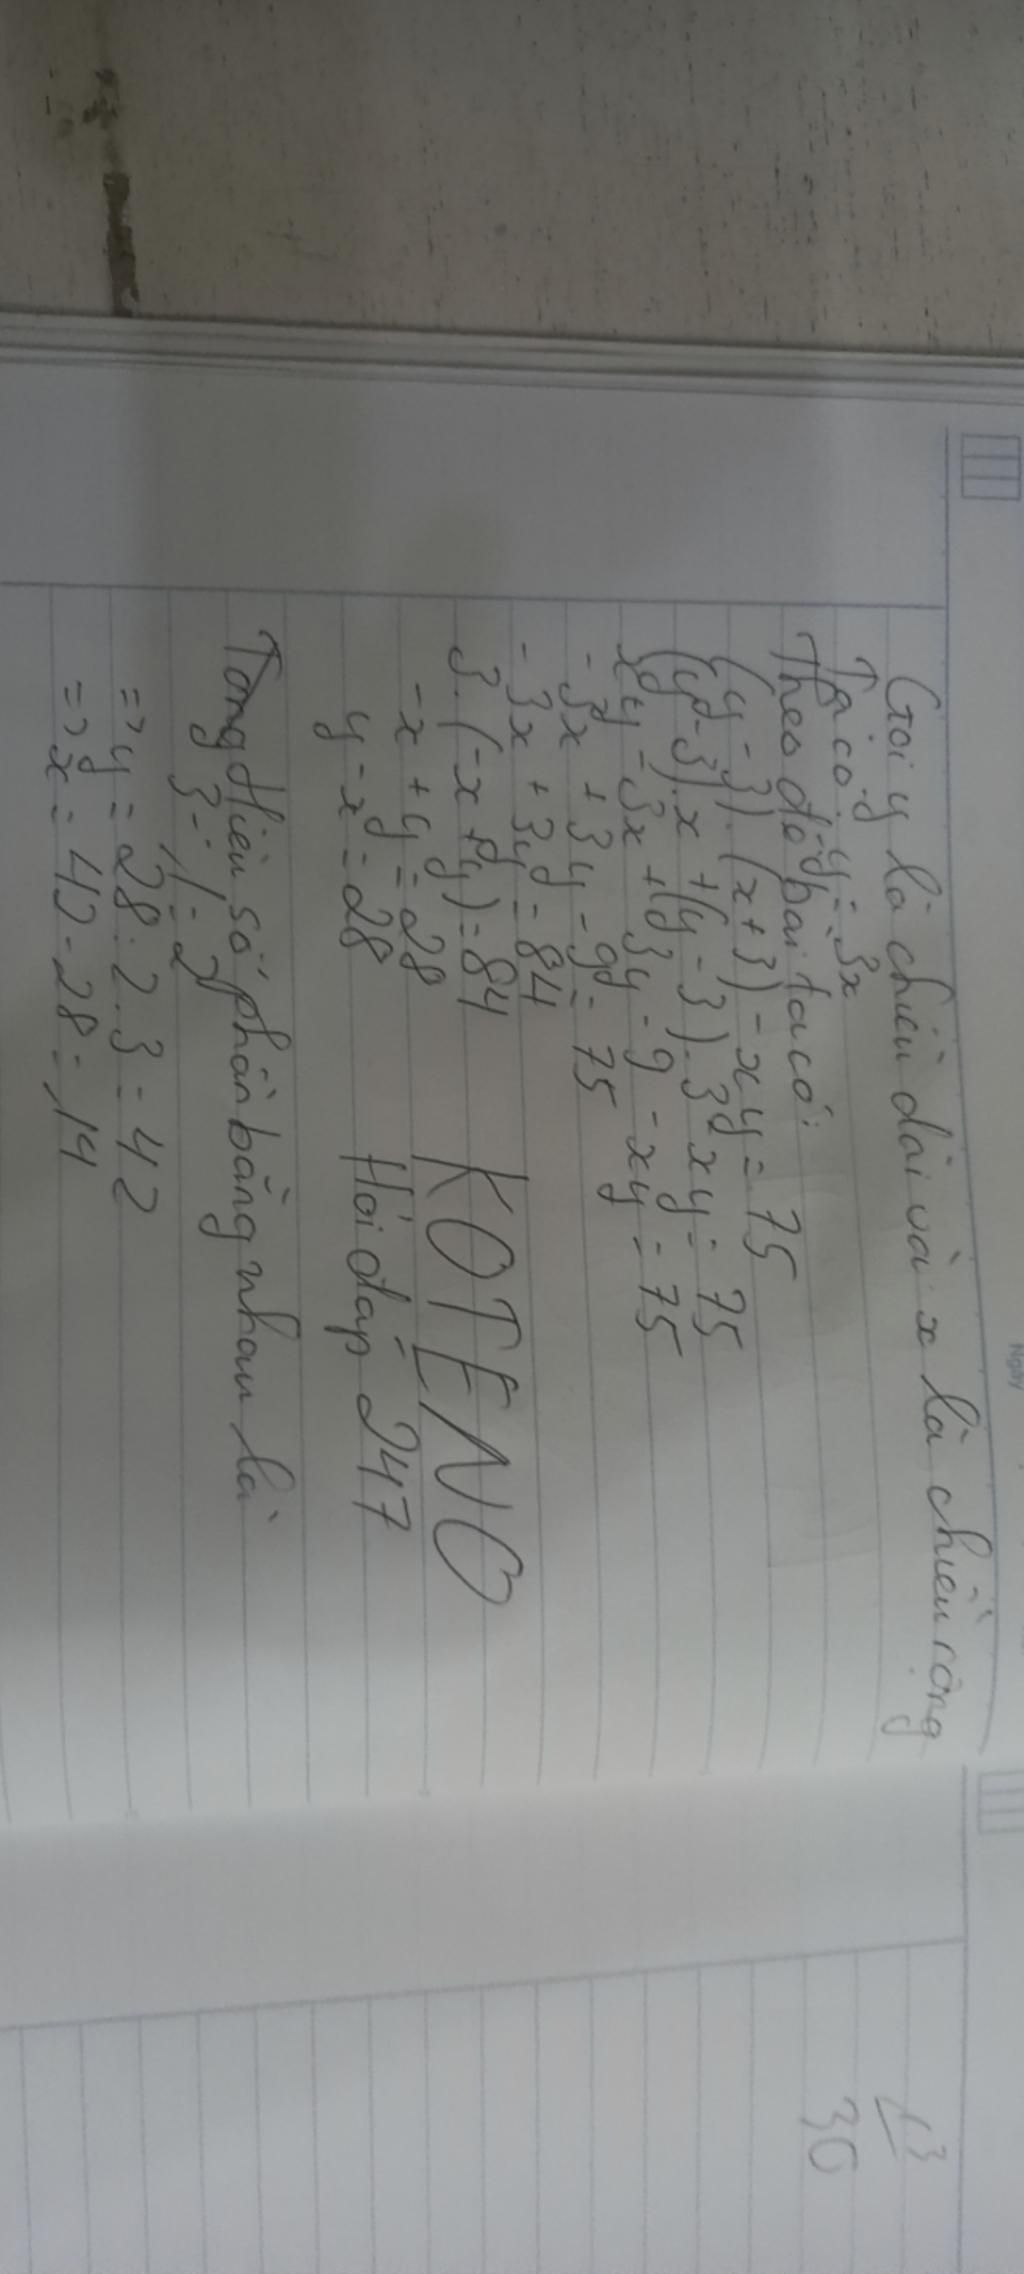 Ngày
Gọi y là chiều dài và x là chiều rộng
Ta có: y = 3x
Theo đề bài ta có:
(y - 3).(x + 3) - xy = 75
(y - 3).x + (y - 3).3 - xy = 75
xy - 3x + 3y - 9 - xy = 75
- 3x + 3y - 9 = 75
- 3x + 3y = 84
3.(-x + y) = 84
-x + y = 28
y - x = 28
KOTENO
Hỏi đáp 247
Tổng hiệu số phần bằng nhau là
3 - 1 = 2
=> y = 28 : 2 . 3 = 42
=> x = 42 - 28 = 14
30